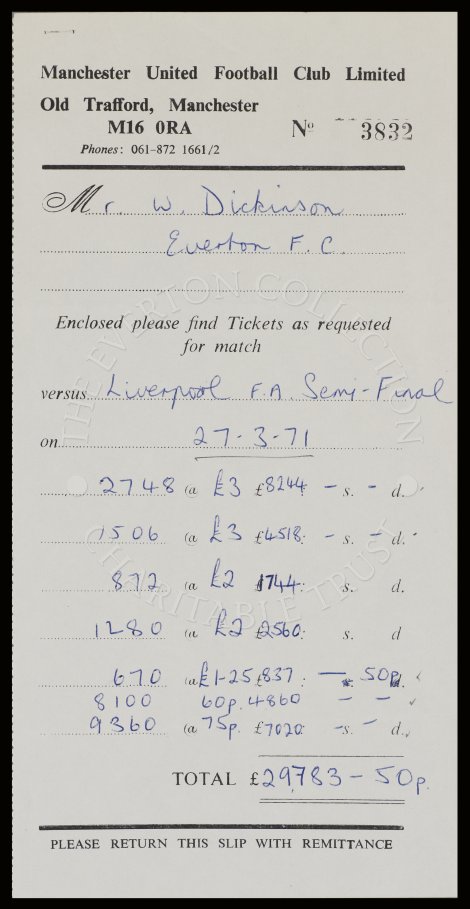 Manchester United Football Club Limited
Old Trafford, Manchester
M16 0RA
Nº 3832
Phones: 061-872 1661/2
Mr. W. Dickinson
Everton F.C.
Enclosed please find Tickets as requested
for match
versus Liverpool F.A. Semi-Final
on 27-3-71
2748 @ £3 £8244 - s. - d.
1506 @ £3 £4518: - s. - d.
872 @ £2 £1744: s. d.
1280 @ £2 £2560: s. d
670 @ £1-25 £837: - s. 50p d.
8100 60p. 4860 - -
9360 @ 75p. £7020: - s. - d.
TOTAL £29783 - 50p.
PLEASE RETURN THIS SLIP WITH REMITTANCE
THE EVERTON COLLECTION
CHARITABLE TRUST